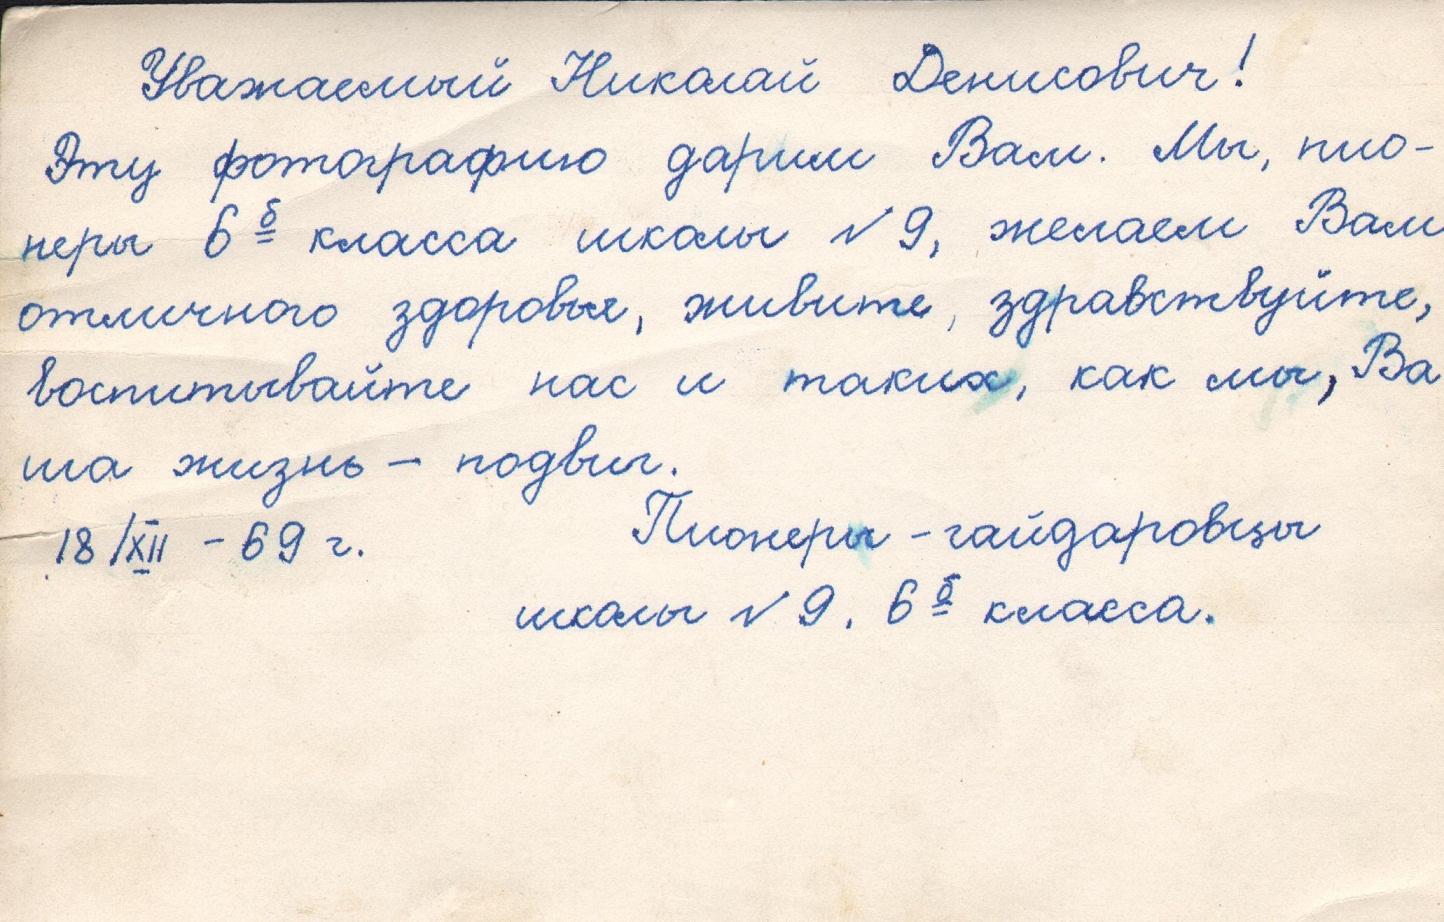 Уважаемый Николай Денисович!
Эту фотографию дарим Вам. Мы, пио-
неры 6 б класса школы № 9, желаем Вам
отличного здоровья, живите, здравствуйте,
воспитывайте нас и таких, как мы, Ва
ша жизнь – подвиг.
18/XII – 69 г.
Пионеры – гайдаровцы
школы № 9, 6 б класса.